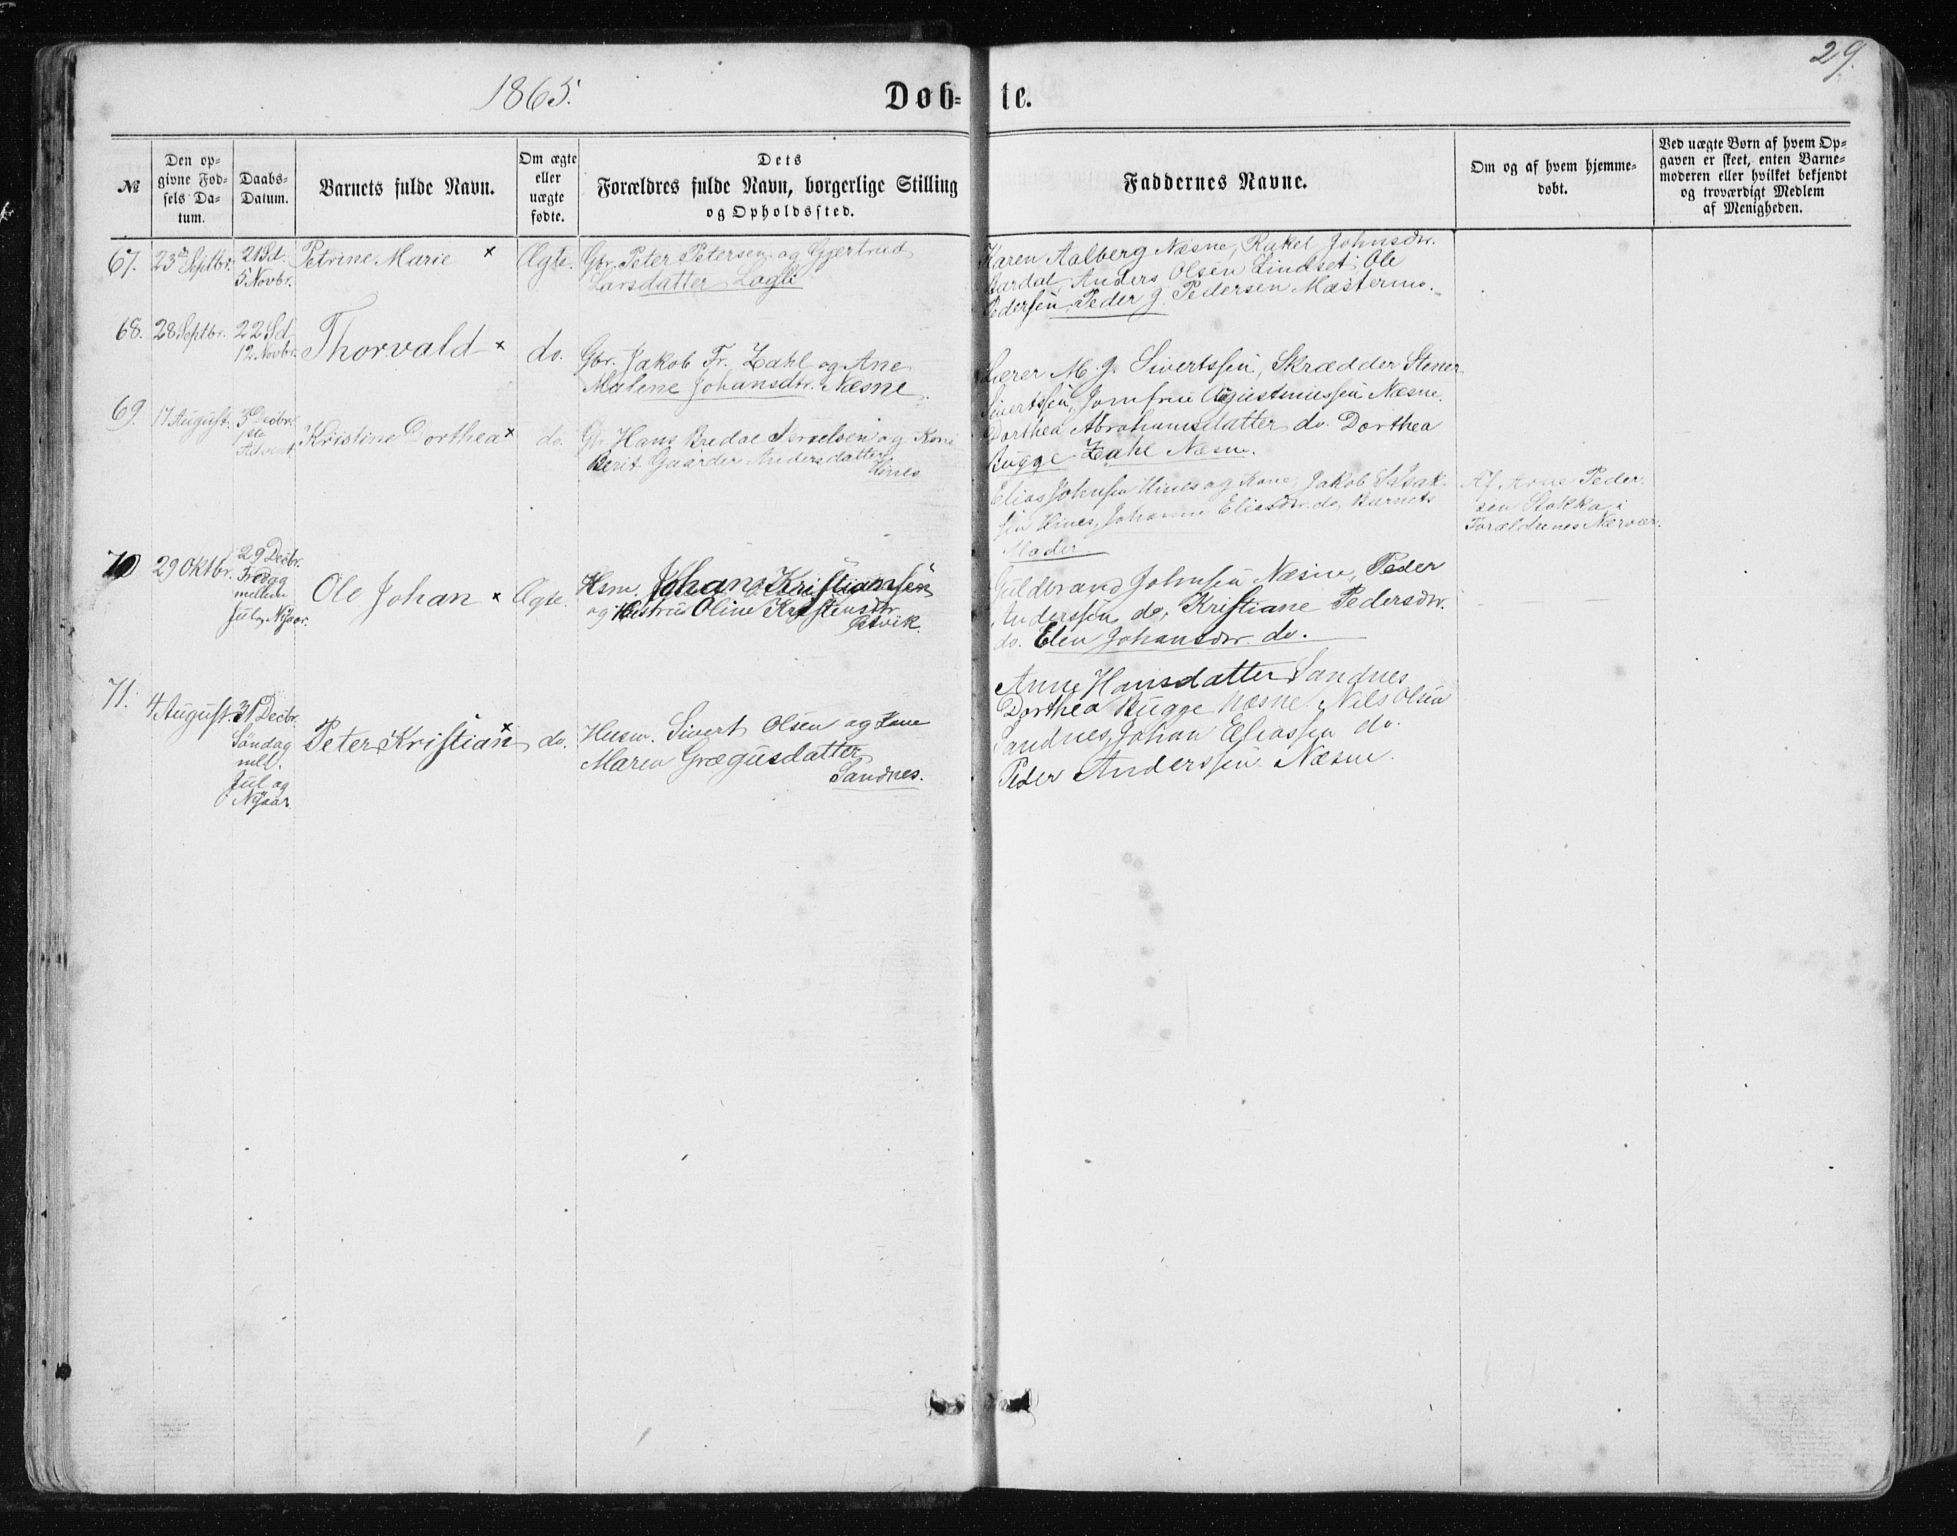 1865.
Døb-
te.
29.
№
Den op-
givne Fød-
sels Da-
tum.
Daabs-
Datum.
Barnets fulde Navn.
Om ægte
eller
uægte
fødte.
Dets
Forældres fulde Navn, borgerlige Stilling
og Opholdssted.
Faddernes Navne.
Om og af hvem hjemme-
døbt.
Ved uægte Børn af hvem Op-
gaven er skeet, enten Barne-
moderen eller hvilket bekjendt
og troværdigt Medlem
af Menigheden.
67.
23de Septbr.
21 Sd.
5 Novbr.
Petrine Marie ×
Ægte.
Gbr. Peter Petersen og Gjertrud
Larsdatter Logli
Karen Aalberg Næsne, Rakel Johnsdtr.
Bardal, Anders Olsen Lindset, Ole
Pedersen, Peder J. Pedersen
68.
28 Septbr.
22 Sd
12 Novbr.
Thorvald ×
do.
Gbr. Jakob Fr. Zahl og Ane
Malene Johansdtr. Næsne.
Lærer M. J. Sivertssen, Skrædder Stener
Sivertssen, Jomfrue Næsne.
Dorthea Abrahamsdatter do. Dorthea
Bugge Zahl Næsne.
69.
17 August.
3 Decbr.
1ste
Advent
Kristine Dorthea ×
do.
Gbr. Hans Bredal Israelsen og Kone
Berit Gaarder Andersdatter
Hines
Elias Johnsen Hines og Kone, Jakob
Hines, Johanne Eliasdtr. do, Barnets
Moder
Af Arne Peder-
sen Stokka i
Forældrenes Nærvær.
70
29 Oktbr.
29 Decbr.
Fredag
mellem
Jul og Nyaar.
Ole Johan ×
Ægte.
Hsm. Johan Kristiansen
og Hustru Oline Kristensdtr.
Guldbrand Johnsen Næsne, Peder
Anderssen do, Kristiane Pedersdtr.
do. Elen Johansdtr. do.
71.
4 August
31 Decbr.
Søndag
mell.
Jul og
Nyaar.
Peter Kristian ×
do.
Husm. Sivert Olsen og Kone
Maren Grægusdatter
Sandnes.
Anne Hansdatter Sandnes
Dorthea Bugge Næsne. Nils Olsen
Sandnes, Johan Eliassen do.
Peder Anderssen Næsne.